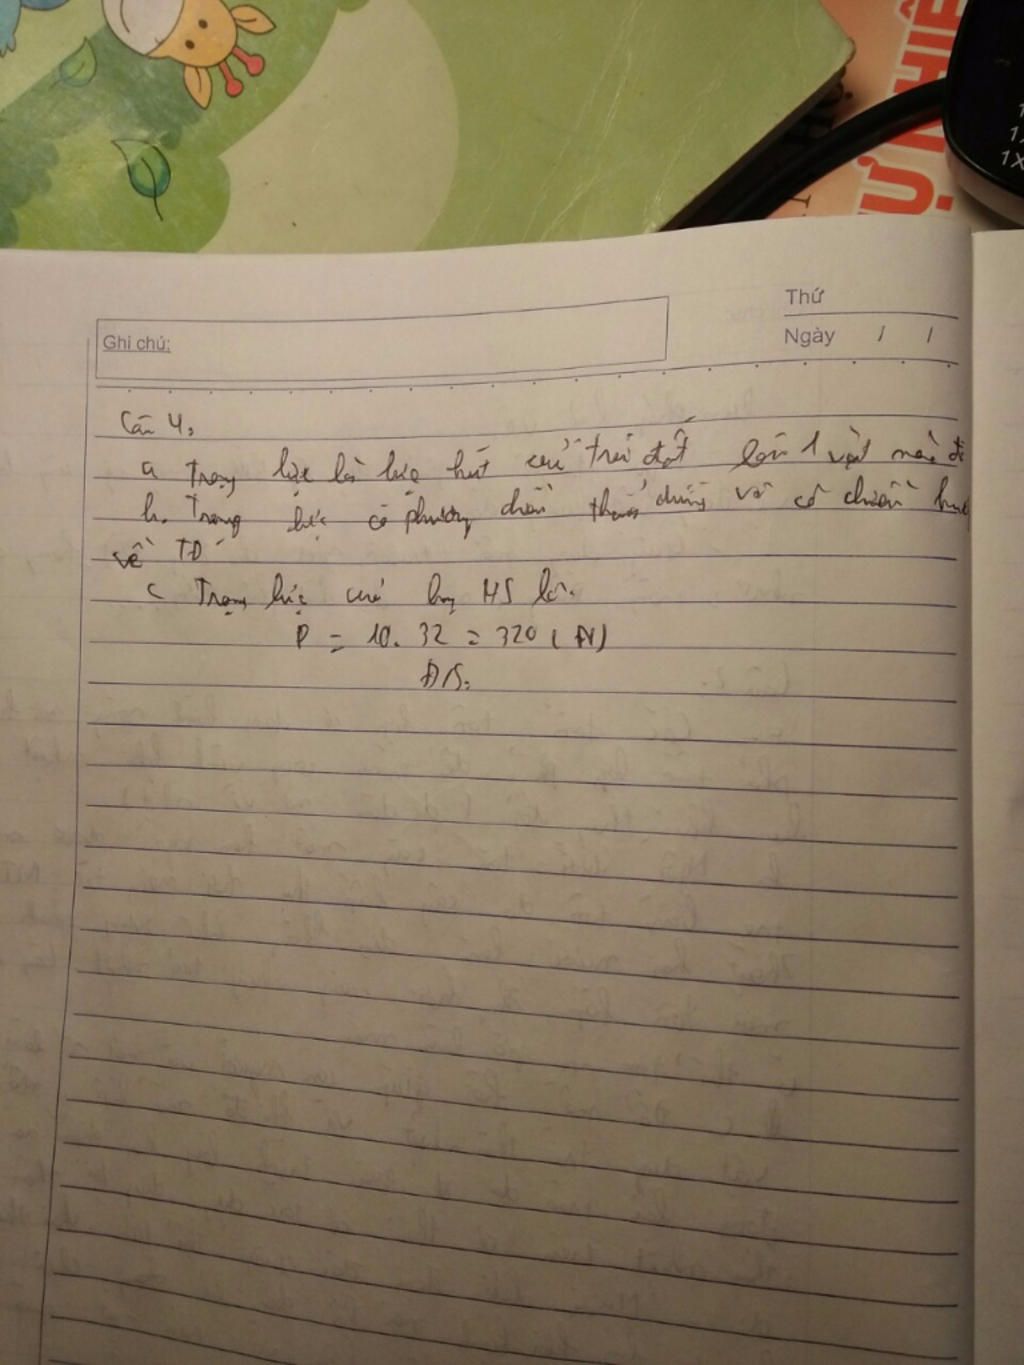 Ự NHIÊ
1X
Thứ
Ghi chú:
Ngày / /
Câu 4:
a Trọng lực là lực hút của trái đất lên 1 vật nào đó
b. Trọng lực có phương thẳng đứng và có chiều hướng
về TĐ
c Trọng lực của HS là.
P = 10. 32 = 320 (N)
Đ/S: